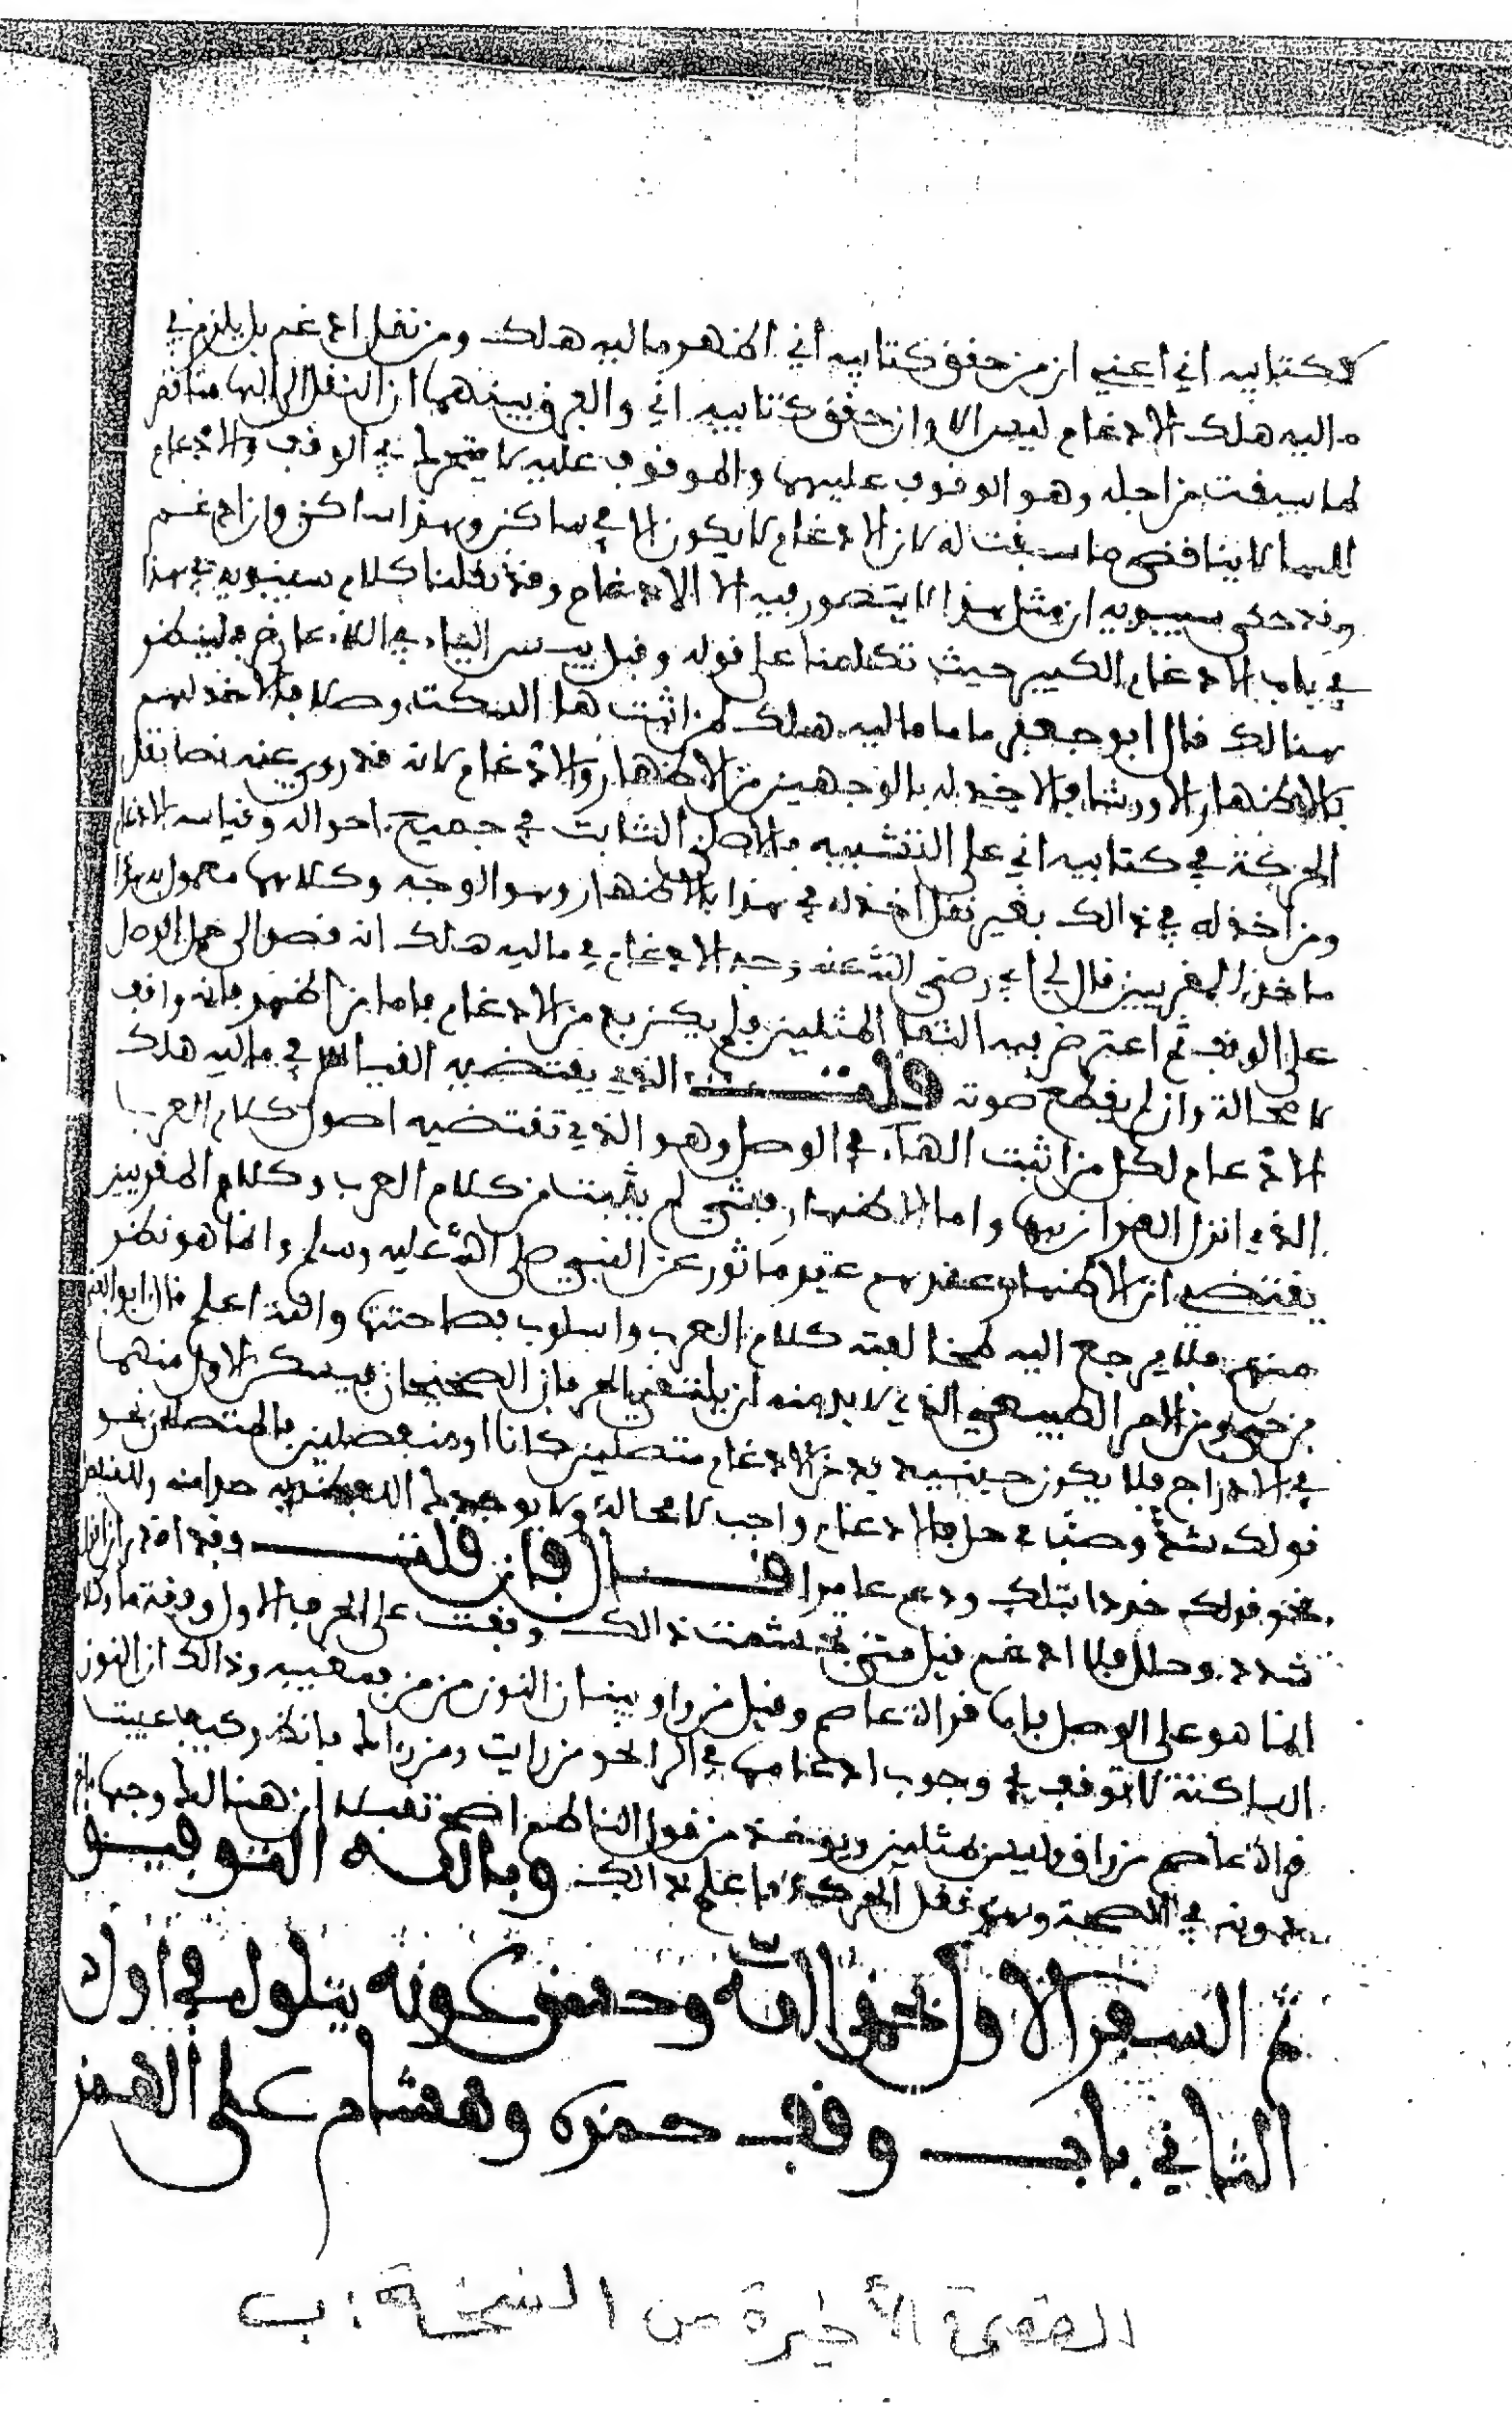 كتابيه اني اعني ان من حقق كتابيه اني اظهر ماليه هلك ومن نقل ادغم بل يلزم في
ماليه هلك الادغام ليس الا وان حقق كتابيه اني والفرق بينهما ان النقل الى الها مناقض
لما سيقت من اجله وهو الوقوف عليها والموقوف عليه لا يتحرك في الوقف والادغام
للها لا يناقض ما سيقت له لان الادغام لا يكون الا في ساكن وهذا ساكن وان ادغم
وقد حكى سيبويه ان مثل هذا لا يتصور فيه الا الادغام وقد نقلنا كلام سيبويه في هذا
في باب الادغام الكبير حيث تكلمنا على قوله وقبل يئسن الياء في اللاء عارض فلينظر
هنالك قال ابو جعفر فاما ماليه هلك لمن اثبت ها السكت وصلا فالاخذ لهم
بالاظهار الا ورشا فالاخذ له بالوجهين من الاظهار والادغام لانه قد روي عنه نصا نقل
الحركة في كتابيه اني على التشبيه بالاصلي الثابت في جميع احواله وقياسه الادغام
ومن اخذ له في ذالك بغير نقل اخذ له في هذا بالاظهار وهو الوجه وكلاهما معمول به
ماخذ المقريين قال لي ابي رضي الله عنه وجه الادغام في ماليه هلك انه قصد الى حمل الوصل
على الوقف ثم اعترض فيه التقا المثلين فلم يكن بد من الادغام فاما من اظهر فانه واقف
لا محالة وان لم يقطع صوته قلت الذي يقتضيه القياس في ماليه هلك
الادغام لكل من اثبت الهاء في الوصل وهو الذي تقتضيه اصول كلام العرب
الذي انزل القران بها واما الاظهار فشي لم يثبت من كلام العرب وكلام المقريين
يقتضي ان الاظهار عندهم غير ماثور عن النبي صلى الله عليه وسلم وانما هو نظر
منهم فلا يرجع اليه لمخالفته كلام العرب واسلوب فصاحتها والله اعلم قال ابو الفتح
بن جني ومن الامر الطبيعي الذي لا بد منه ان يلتقي الحرفان الصحيحان فيسكن الاول منهما
في الادراج فلا يكون حينيذ بد من الادغام متصلين كانا او منفصلين فالمتصلان نحو
قولك شدّ وصبّ فالادغام واجب لا محالة ولا يوجدك اللفظ به بدا منه والمنفصل
نحو قولك خذ داتبك ودع عامرا قال فان قلت وقد اقدر ان اقول
شدد وحلل فلا ادغم قيل متى تجشمت ذالك وقفت على الحرف الاول وقفة ما وكلامنا
انما هو على الوصل فاما قراة عاصم وقيل من راق وبيان النون من من فمعيب وذالك ان النون
الساكنة لا توقف في وجوب ادغامها في الرا نحو من رايت ومن رءاك فانظر كيف عيبت
قراة عاصم من راق وليس بمثلين ويوخذ من قول الناظم اصح تقبلا ان هنالك وجها
دونه في الصحة وهو نقل الحركة فاعلم ذالك وبالله التوفيق
تم السفر الاول بحمد الله وحسن عونه يتلوه في اول
الثاني باب وقف حمزة وهشام على الهمز
الصفحة الأخيرة من النسخة: ب